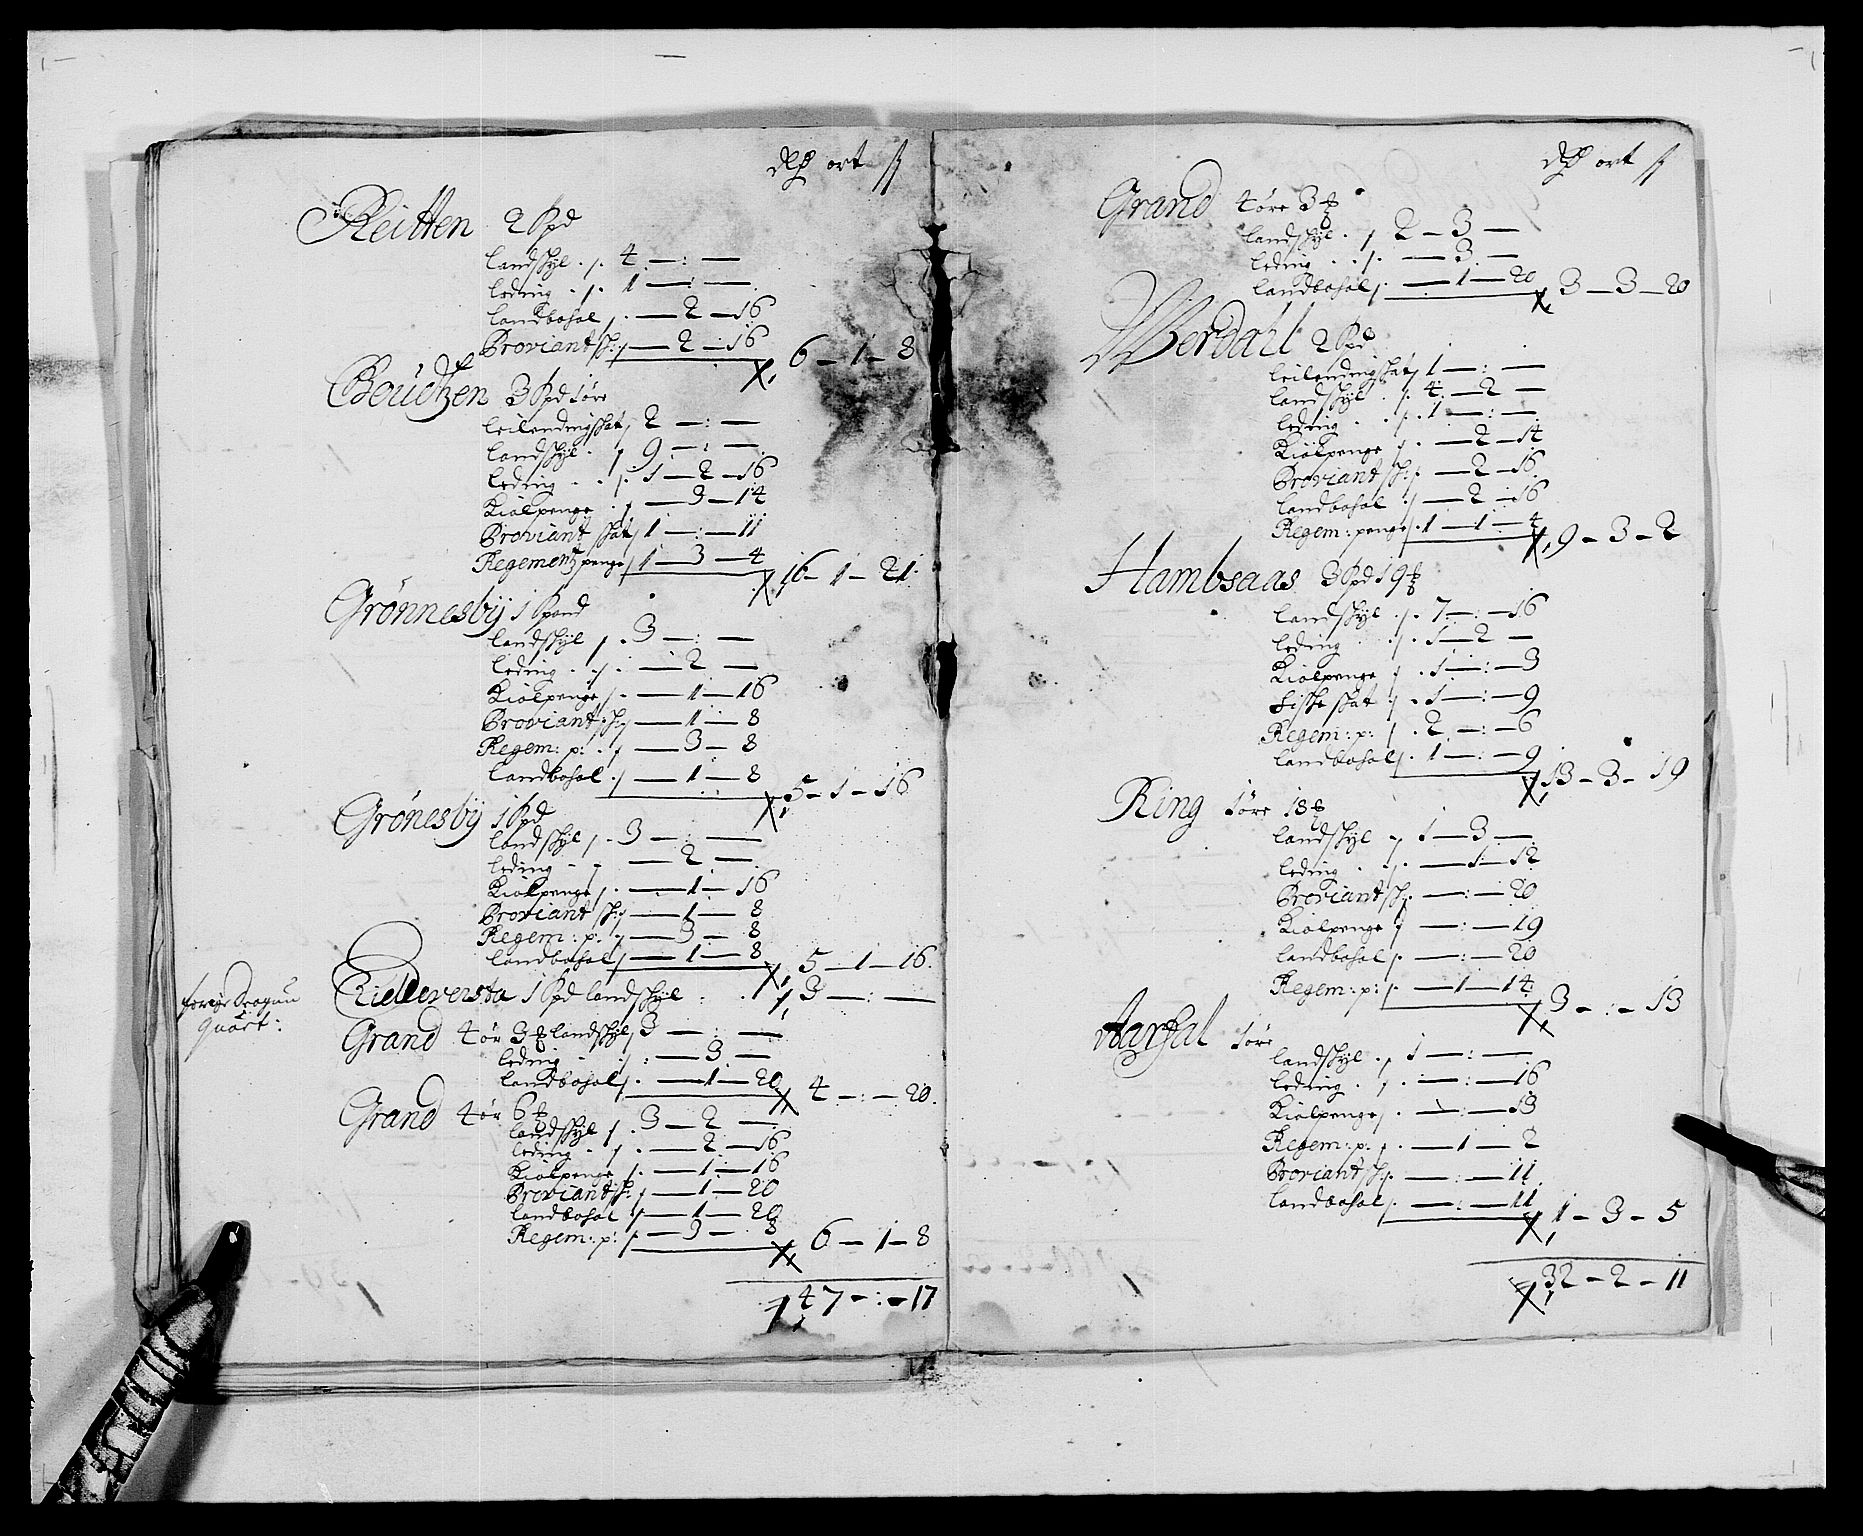 dlr ort ß
Reitten 2 Spd
landskyl . 4 — : —
leding . 1 — : —
landbohol — 2 — 16
Proviant sk: — 2 — 16
6 — 1 — 8
Boudtzen 3 Spd 1 øre
leilendingskat 2 — : —
landskyl . 9 — : —
leding . . 1 — 2 — 16
Kiølpenge . — 3 — 14
Proviant skat 1 — : — 11
Regementz penge 1 — 3 — 4
16 — 1 — 21
Grønnesbÿ 1 Spand
landskyl . 3 — : —
leding . . — 2 —
Kiølpenge . — 1 — 16
Proviant sk: — 1 — 8
Regem: p: . — 3 — 8
landbohol . — 1 — 8
5 — 1 — 16
Grønesbÿ 1 Spd
landskyl . 3 — : —
leding . — 2 —
Kiølpenge . — 1 — 16
Proviant sk: — 1 — 8
Regem: p. — 3 — 8
landbohol — 1 — 8
5 — 1 — 16
1 Spd landskyl . . 3 — : —
forige Dragun
quart:
Grand 4 ør 3 landskyl 3 — : —
leding . : — 3 —
landbohol . — 1 — 20
4 — : — 20
Grand 4 ør 6
landskyl . 3 — 2 —
leding . . — 2 — 16
Kiølpenge . — 1 — 16
Proviant sk: — 1 — 20
landbohol — 1 — 20
Regem: p: — 3 — 8
6 — 1 — 8
47 — : — 17
dlr ort ß
Grand 4 øre 3
landskyl . 2 — 3 —
leding . . — 3 —
landbohol — 1 — 20
3 — 3 — 20
Werdahl 2 Spd
leilendingskat 1 — : —
landskyl . 4 — 2 —
leding . . 1 — : —
Kiølpenge . — 2 — 14
Proviant sk: — 2 — 16
landbohol — 2 — 16
Regem: penge . 1 — 1 — 4
9 — 3 — 2
Hambsaas 3 Spd 19
landskyl . 7 — : — 16
leding . . 1 — 2 —
Kiølpenge . 1 — : — 3
Fiske skat . 1 — : — 9
Regem: p: . 2 — : — 6
landbohol . 1 — : — 9
13 — 3 — 19
Ring 1 øre 18
landskyl 1 — 3 —
leding . — 1 — 12
Proviant sk: — : — 20
Kiølpenge — : — 19
landbohol . — : — 20
Regem: p: . — 1 — 14
3 — : — 13
1 øre
landskyl . 1 — : —
leding . . — : — 16
Kiølpenge . — : — 13
Regem: p: . — 1 — 2
Proviant sk: — : — 11
landbohol . — : — 11
1 — 3 — 5
32 — 2 — 11